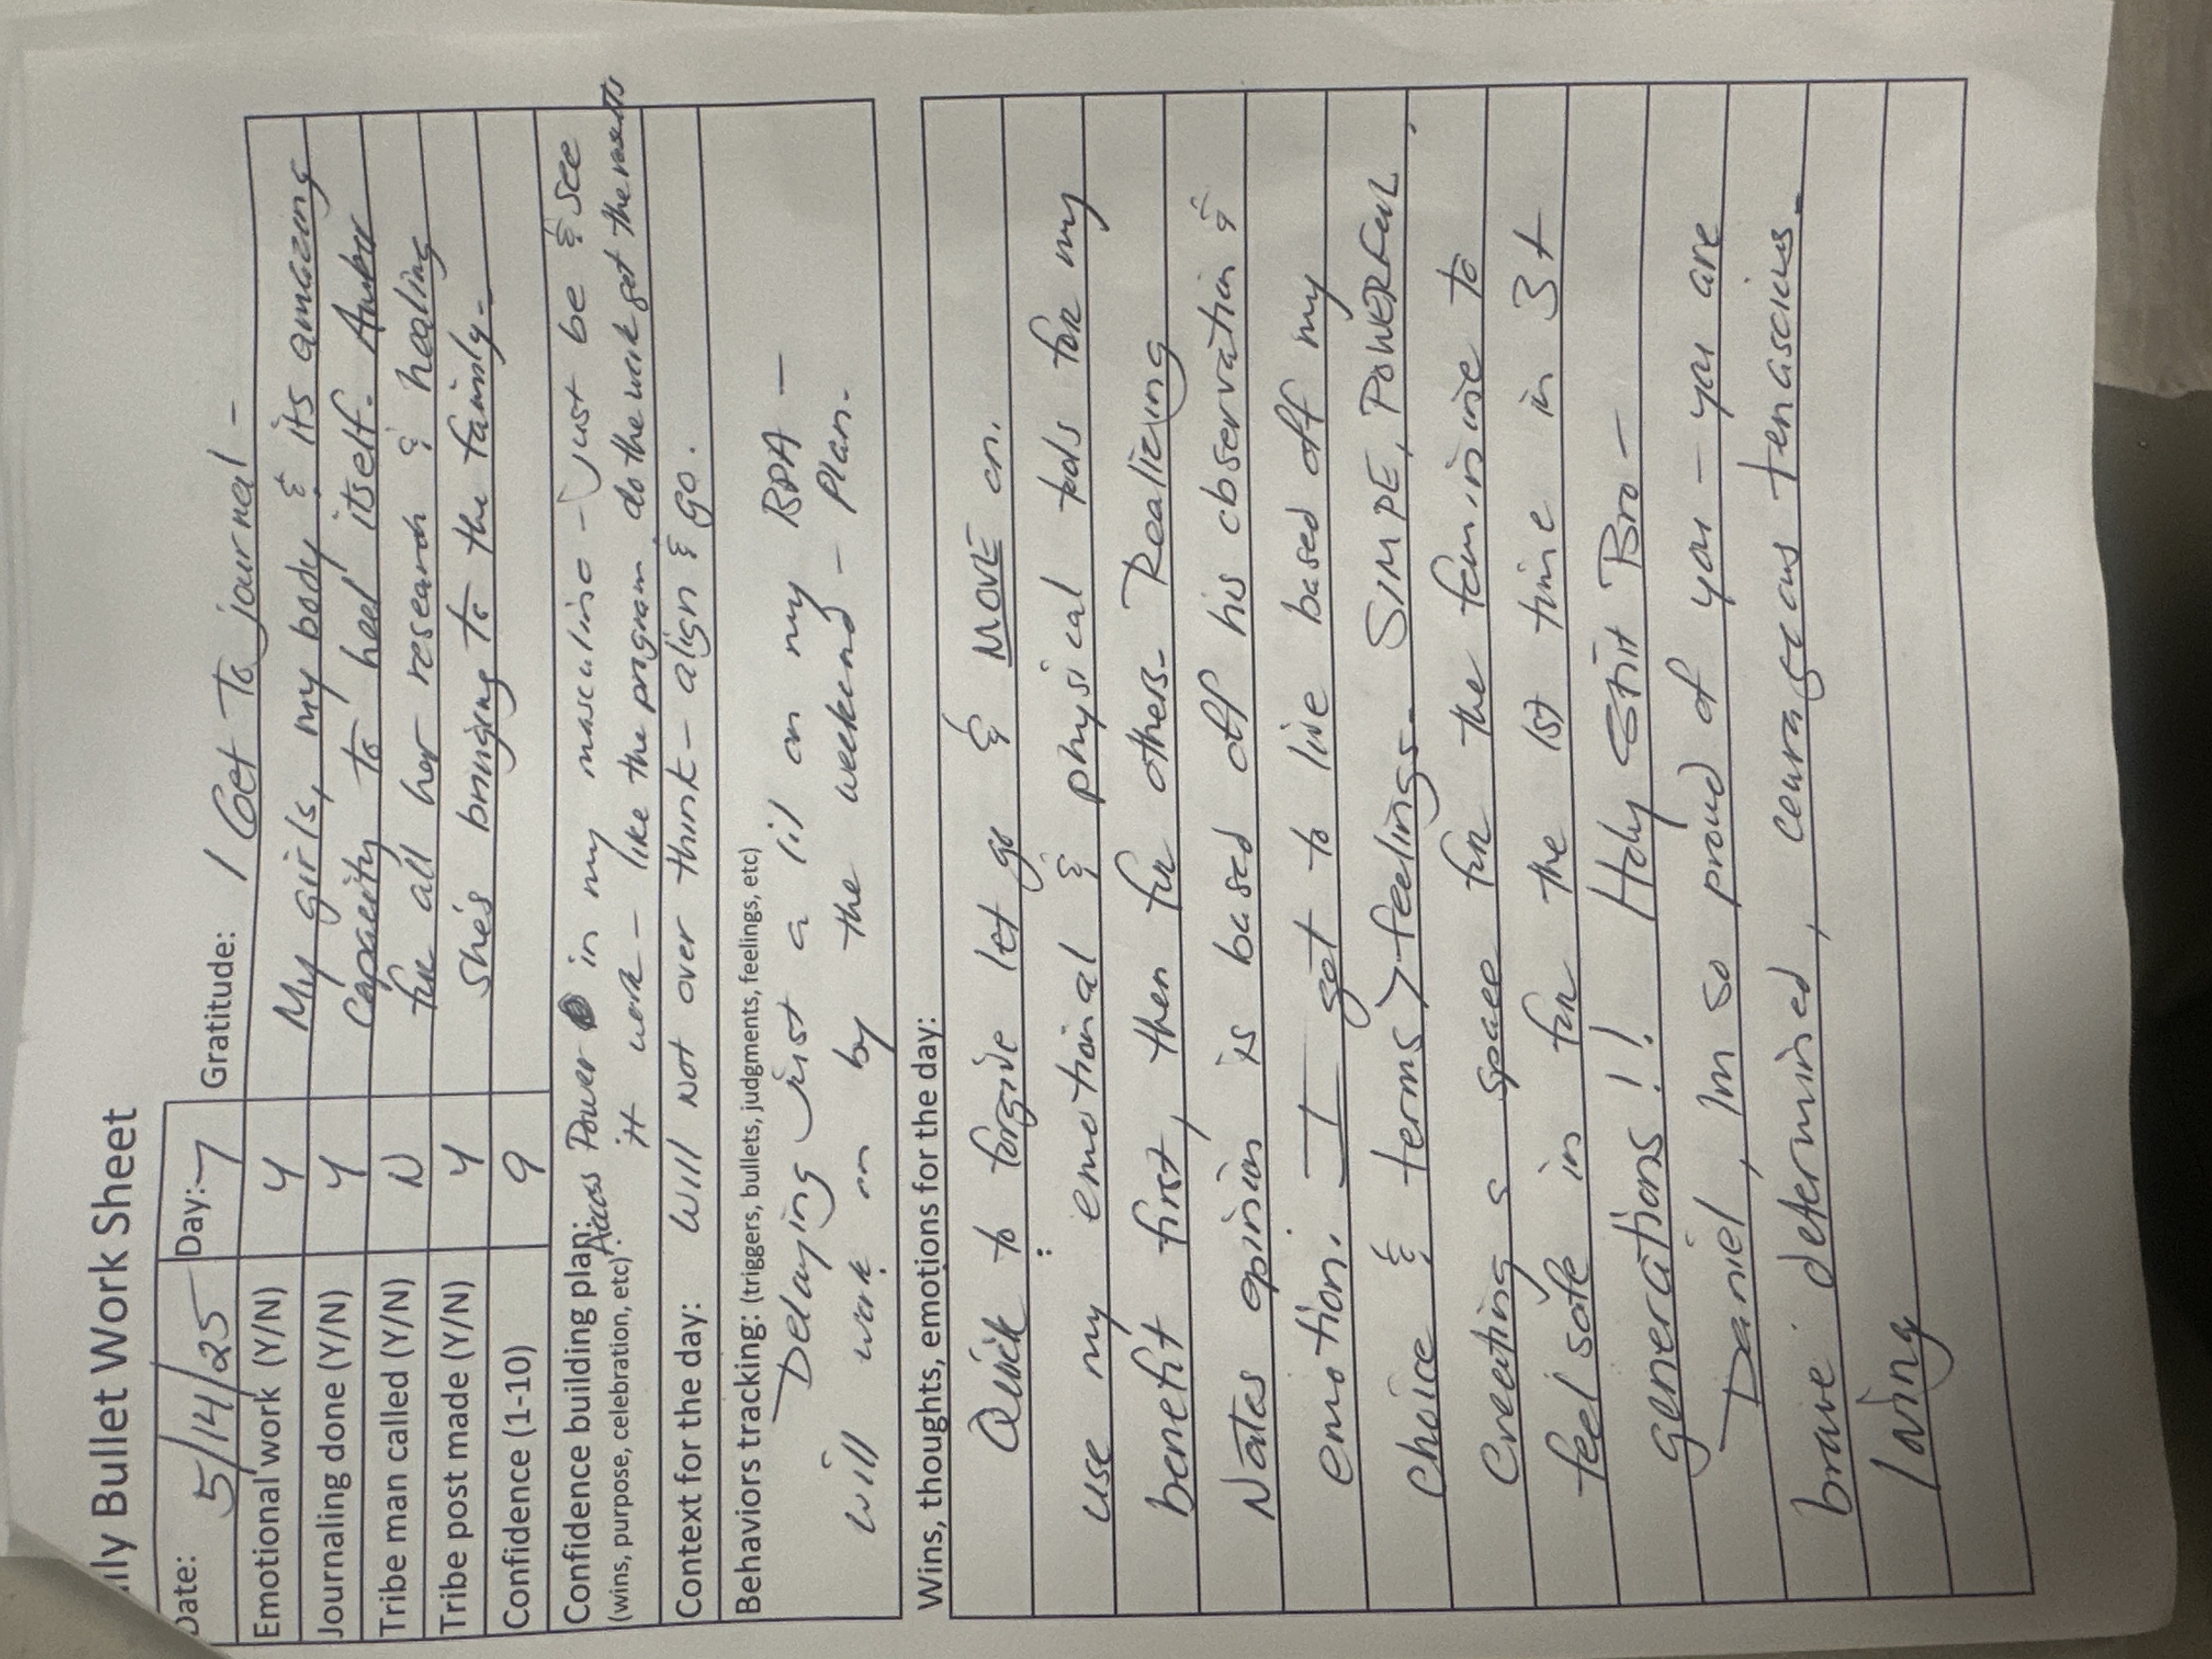 ily Bullet Work Sheet
Date: 5/14/25 Day: 7 Gratitude: I Get To journal -
Emotional work (Y/N) Y My girls, my body & its amazing
Journaling done (Y/N) Y Capacity to heel itself.
Tribe man called (Y/N) N for all her research & healing
Tribe post made (Y/N) Y She's bringing to the family.
Confidence (1-10) 9
Confidence building plan: Access Power in my masculine - Just be & see
(wins, purpose, celebration, etc) it work - like the program do the work get the results
Context for the day: Will Not over think - align & go.
Behaviors tracking: (triggers, bullets, judgments, feelings, etc)
Delaying just a lil on my RPA -
will work on by the weekend - Plan.
Wins, thoughts, emotions for the day:
Quick to forgive let go & MOVE on.
use my emotional & physical tools for my
benefit first, then for others. Realizing
Nates opinion is based off his observation &
emotion. I get to live based off my
choice & terms > feelings. SIMPE, POWERFUL
Creating a space for the feminine to
feel safe in for the 1st time in 3+
generations!! Holy Shit Bro -
Daniel, Im so proud of you - you are
brave determined, courageous tenascius.
loving